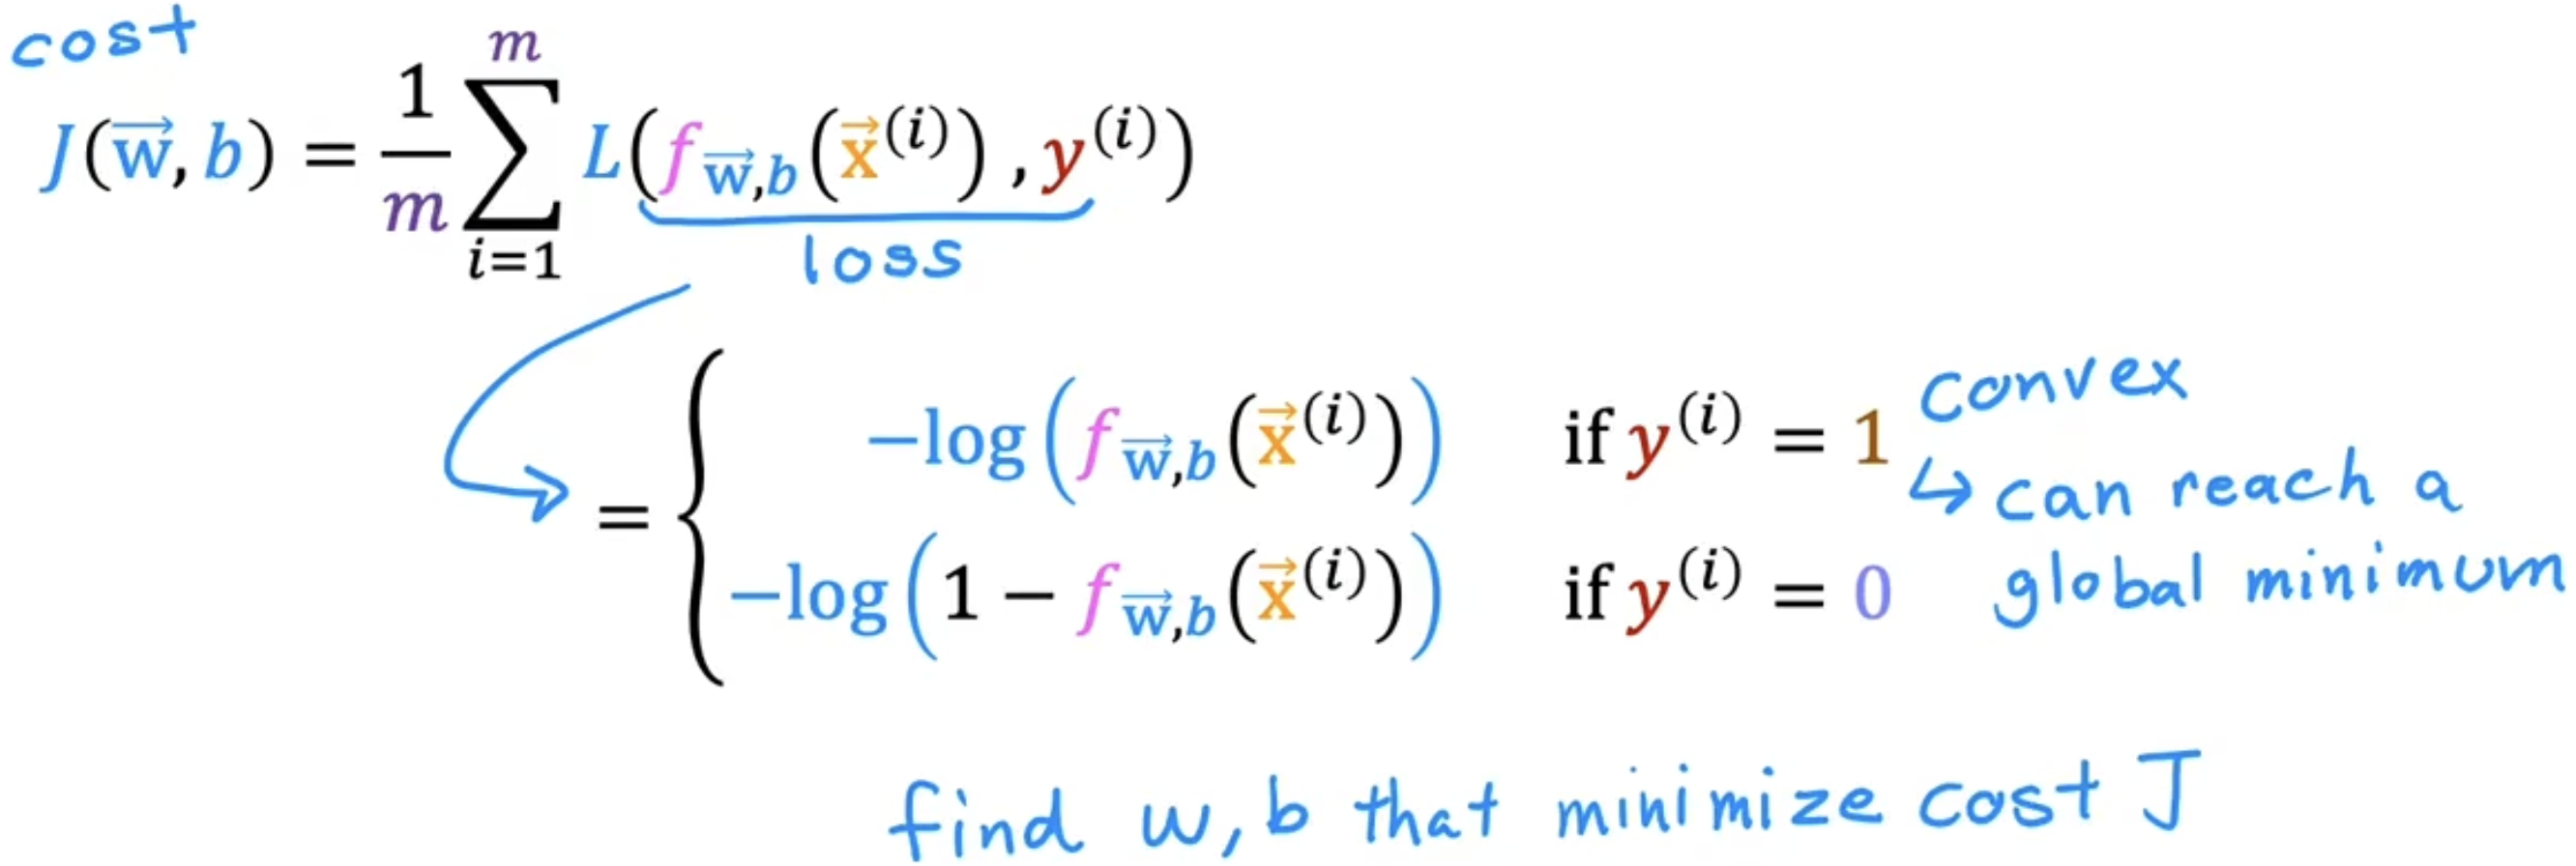 cost
J(w⃗, b) = 1/m ∑_{i=1}^{m} L(f_{w⃗,b}(x⃗^{(i)}), y^{(i)})
loss
= { −log(f_{w⃗,b}(x⃗^{(i)})) if y^{(i)} = 1
−log(1 − f_{w⃗,b}(x⃗^{(i)})) if y^{(i)} = 0
convex
↳ can reach a
global minimum
find w, b that minimize cost J